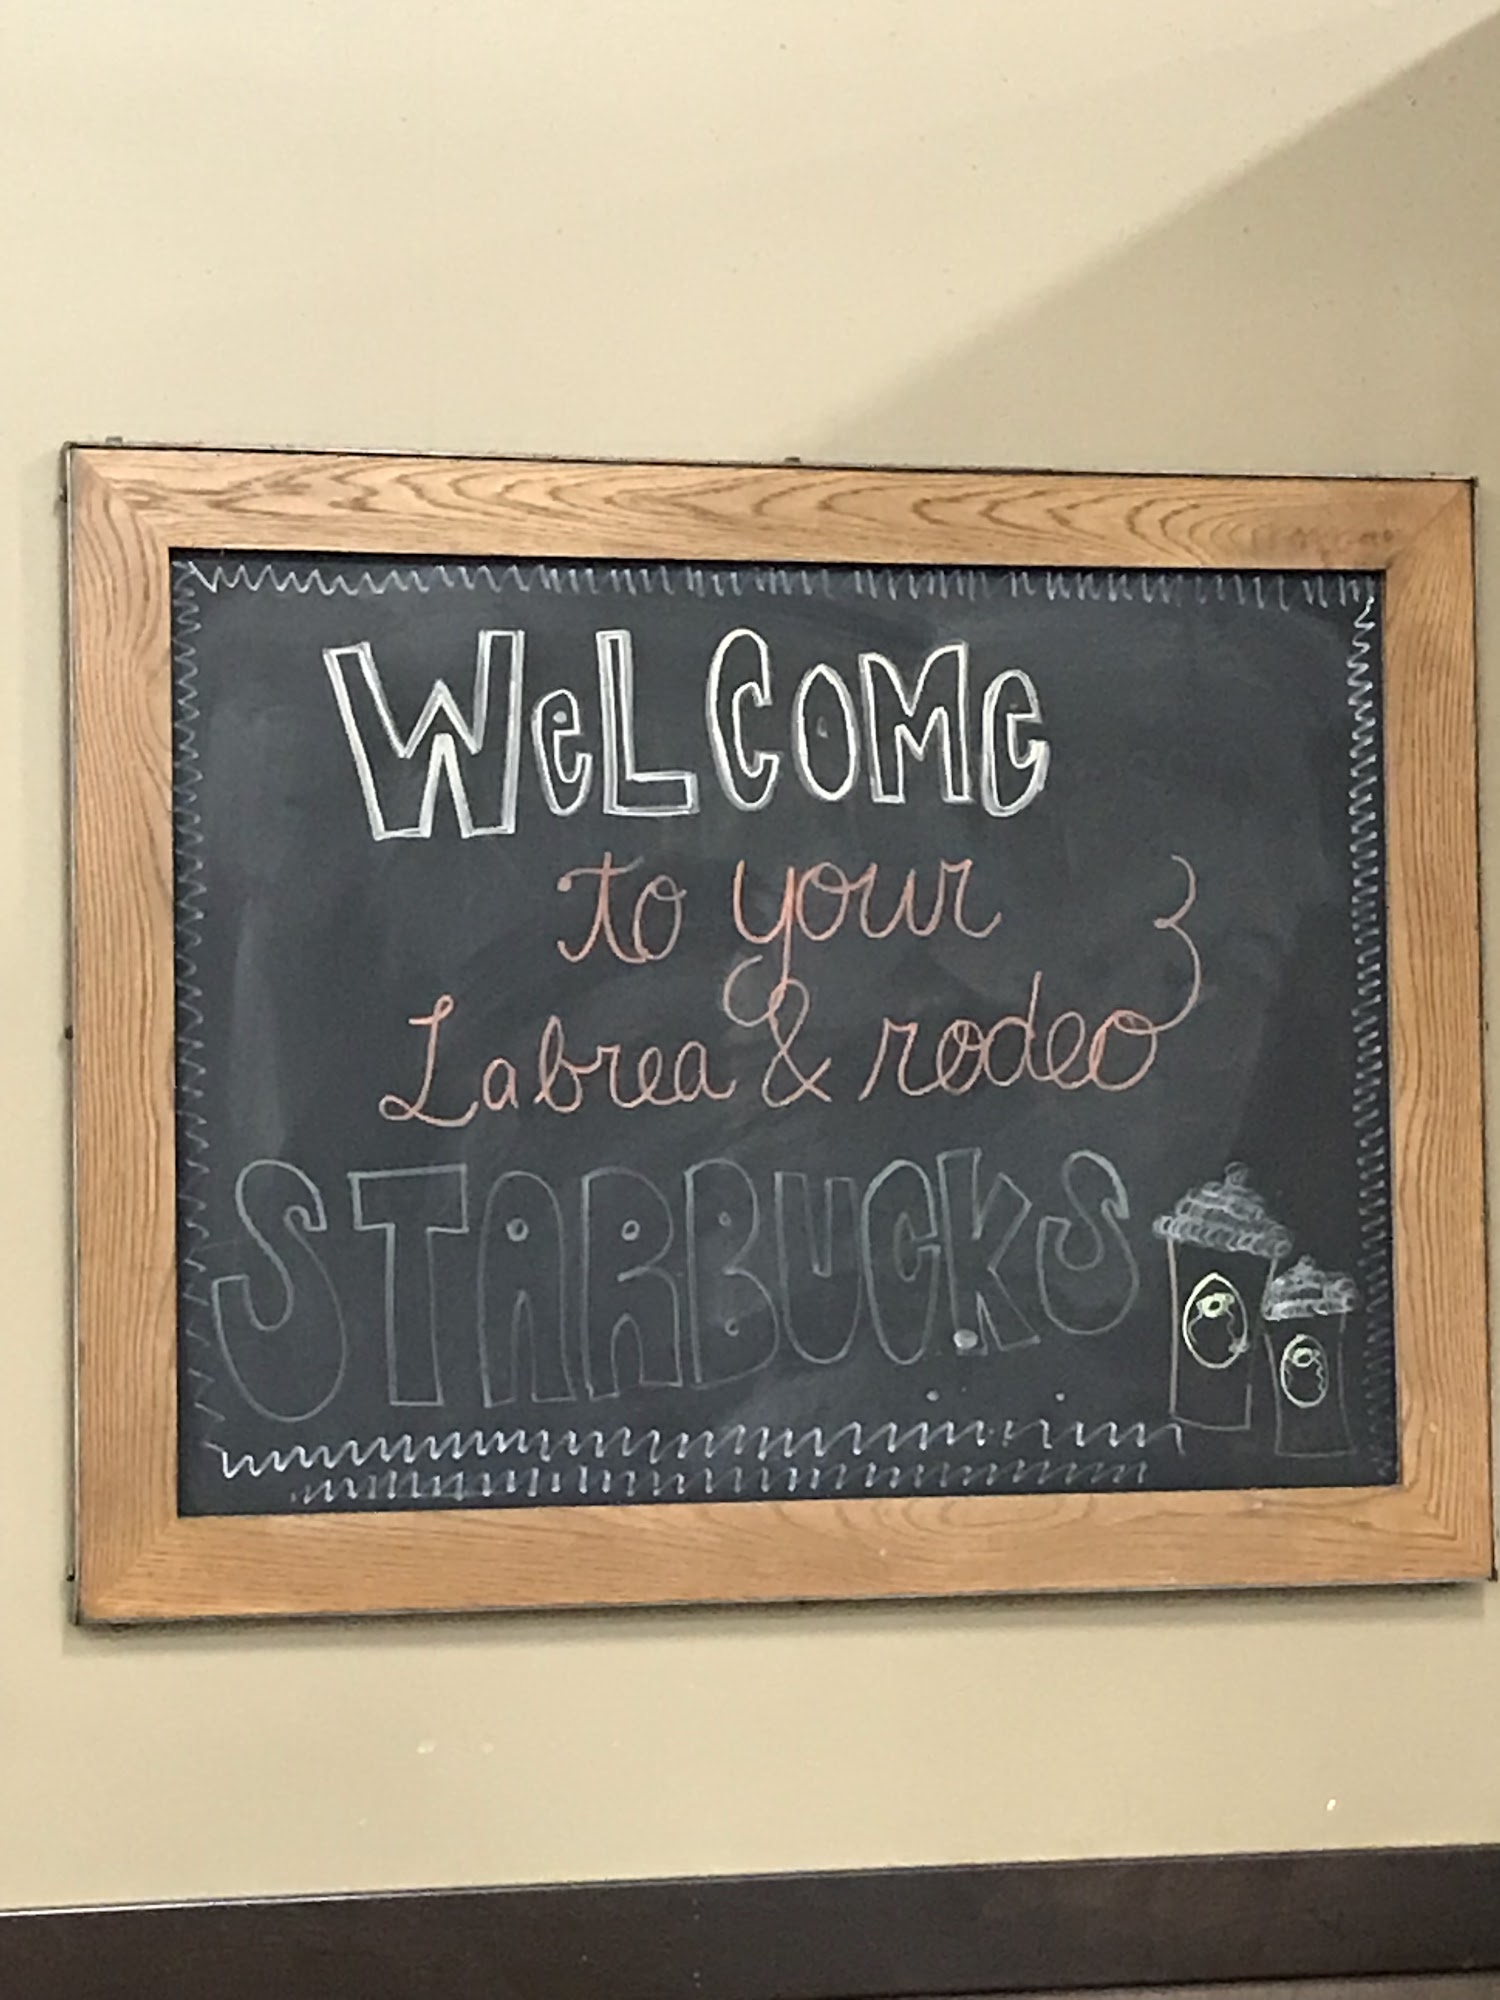 WeLCOMe
to your
Labrea & rodeo
STARBUCKS